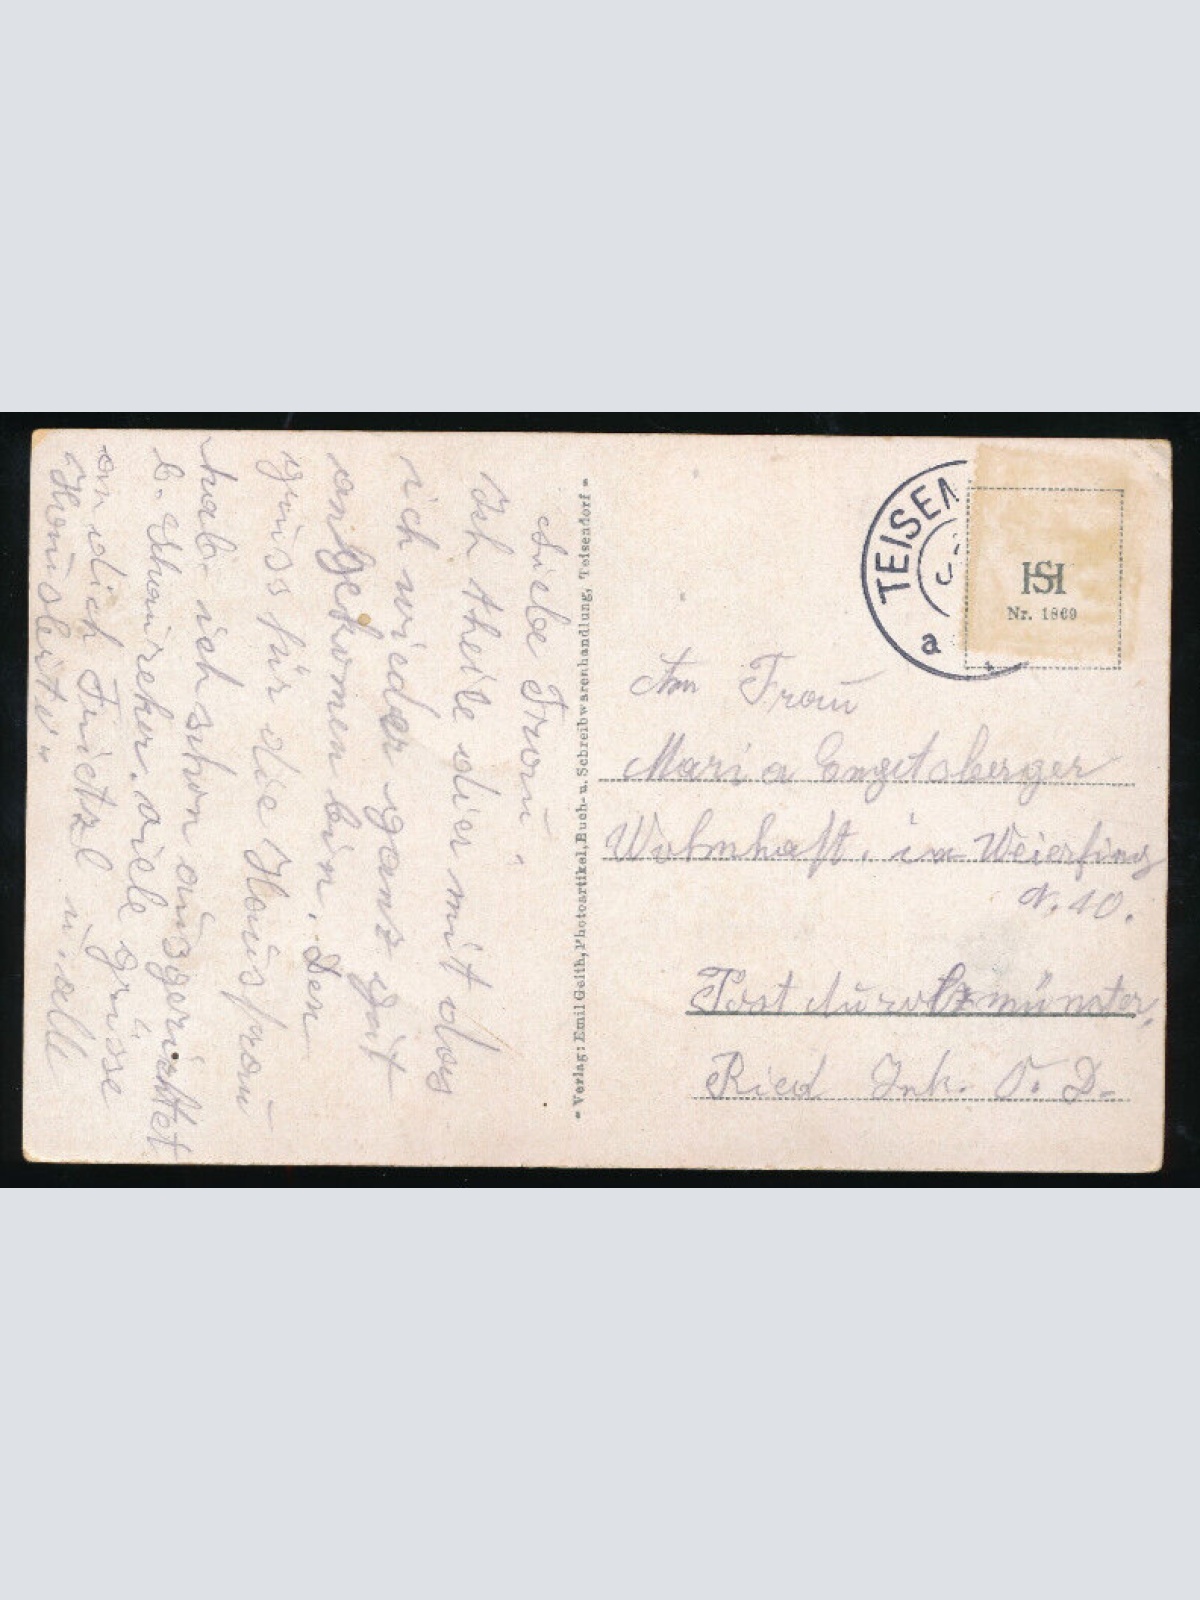 Liebe Frau,
Ich theile dier mit das
ich wieder ganz gut
angekomen bin. Den
gruss für die Hausfrau
hab. ich schon ausgerichtet
b. viele grüsse
an dich Frietzl u. alle
Hausleite"
- Verlag: Emil Geith, Photoartikel, Buch- u. Schreibwarenhandlung, Teisendorf -
TEISEN
a
HSI
Nr. 1869
An Frau
Maria Engetsberger
Wohnhaft. in Weierfing
N. 10.
Post Aurolzmünster,
Ried Ink. O. D-